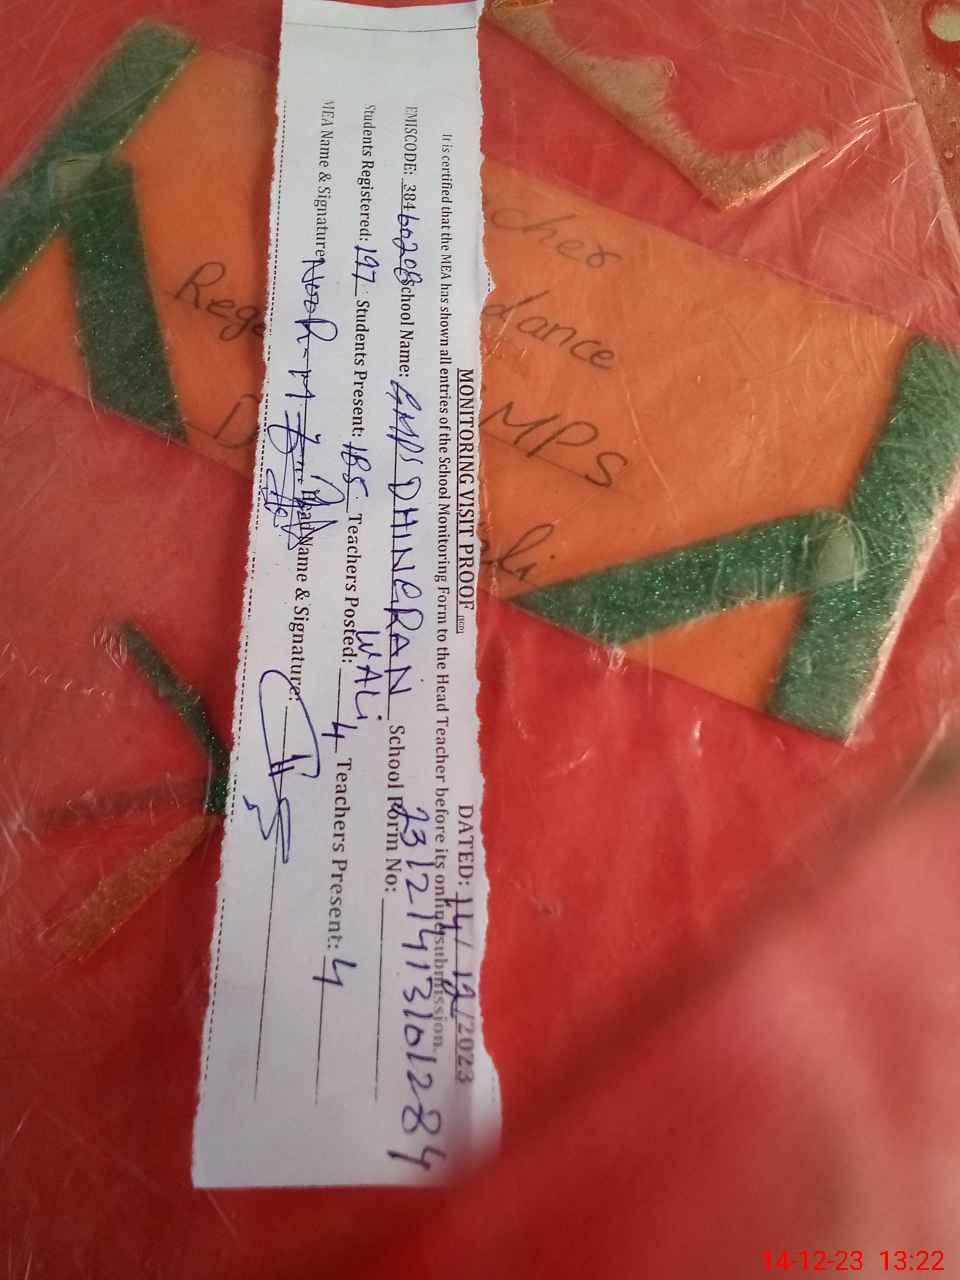 MONITORING VISIT PROOF (SED) DATED: 14/12/2023
It is certified that the MEA has shown all entries of the School Monitoring Form to the Head Teacher before its online submission.
EMISCODE: 38460208 School Name: GMPS DHINGRAN WALi School Form No: 23121413101284
Students Registered: 197 Students Present: 185 Teachers Posted: 4 Teachers Present: 4
MEA Name & Signature: NOOR-M Head Name & Signature:
cher
Reg dance
D MPS
ali
14-12-23 13:22